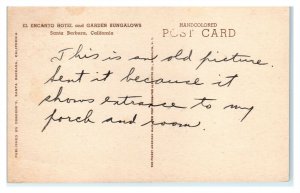 EL ENCANTO HOTEL and GARDEN BUNGALOWS
Santa Barbara, California
HANDCOLORED
POST CARD
This is an old picture.
Sent it because it
shows entrance to my
porch and room.